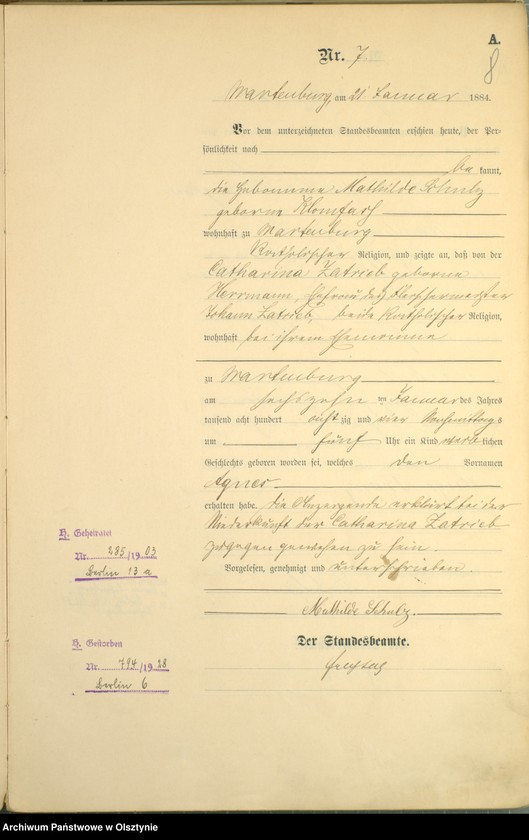 A.
8
Nr. 7
Wartenburg, am 21 Januar 1884.
Vor dem unterzeichneten Standesbeamten erschien heute, der Per-
sönlichkeit nach
be kannt,
die Hebamme Mathilde Schulz
geborne Klomfaß
wohnhaft zu Wartenburg
Katholischer Religion, und zeigte an, daß von der
Catharina Zatrieb geborne
Herrmann, Ehefrau des Fleischermeister
Johann Zatrieb, beide Katholischer Religion,
wohnhaft bei ihrem Ehemanne
zu Wartenburg
am sechszehn ten Januar des Jahres
tausend acht hundert acht zig und vier Nachmittags
um fünf Uhr ein Kind weiblichen
Geschlechts geboren worden sei, welches den Vornamen
Agnes
erhalten habe. Die Anzeigende erklärt bei der
Niederkunft der Catharina Zatrieb
zugegen gewesen zu sein.
Vorgelesen, genehmigt und unterschrieben.
Mathilde Schulz.
Der Standesbeamte.
H. Geheiratet
Nr. 285/1903
Berlin 13 a
H. Gestorben
Nr. 794/1928
Berlin 6
Archiwum Państwowe w Olsztynie